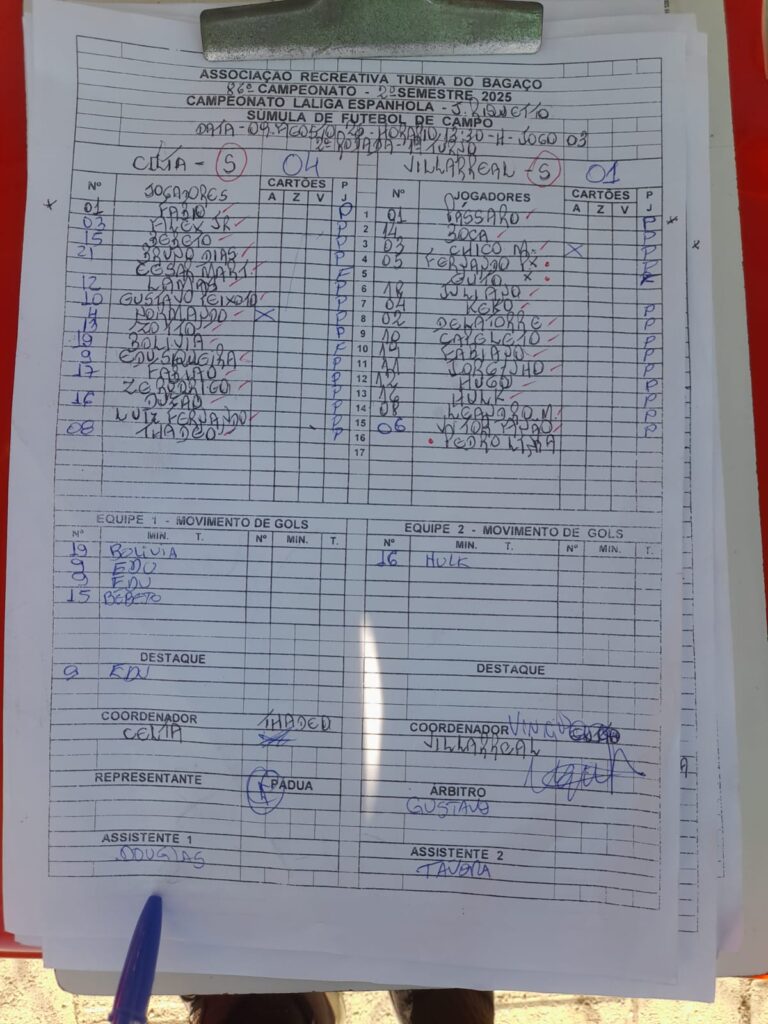 ASSOCIAÇÃO RECREATIVA TURMA DO BAGAÇO
86º CAMPEONATO - 2º SEMESTRE 2025
CAMPEONATO LALIGA ESPANHOLA -
SÚMULA DE FUTEBOL DE CAMPO
DATA - 09 AGOSTO - HORÁRIO 13:30 - H - JOGO 03
2ª RODADA - 1º TURNO
CELTA - S 04 VILLARREAL - S 01
Nº JOGADORES CARTÕES P Nº JOGADORES CARTÕES P
A Z V J A Z V J
01 FABIO P 1 01 PÁSSARO P
03 ALEX JR P 2 14 BOCA P
15 BEBETO P 3 03 CHICO M. X P
21 BRUNO DIAS P 4 05 FERNANDO P
CESAR MART. F 5 GUTO
12 LAMAS P 6 18 JULIANO
10 GUSTAVO PEIXOTO P 7 04 KEKO P
4 NORMANDO X P 8 02 DELATORRE P
13 P 9 10 P
19 BOLIVIA F 10 19 FABIANO P
9 EDU SIQUEIRA P 11 JORGINHO P
17 FABIÃO P 12 HUGO P
ZE RODRIGO P 13 16 HULK P
16 P 14 08 LEANDRO M. P
LUIZ FERNANDO P 15 06 VITOR P
08 THADEO P 16 PEDRO
17
EQUIPE 1 - MOVIMENTO DE GOLS EQUIPE 2 - MOVIMENTO DE GOLS
Nº MIN. T. Nº MIN. T. Nº MIN. T. Nº MIN. T.
19 BOLIVIA 16 HULK
9 EDU
9 EDU
15 BEBETO
DESTAQUE DESTAQUE
9 EDU
COORDENADOR THADEO COORDENADOR
CELTA VILLARREAL
REPRESENTANTE PADUA ÁRBITRO
GUSTAVO
ASSISTENTE 1 ASSISTENTE 2
DOUGLAS